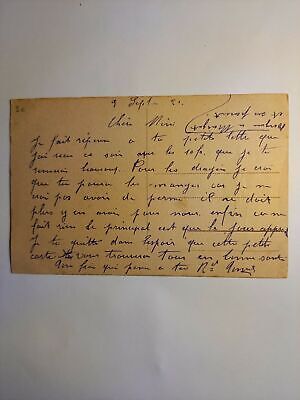 9 Sept - 21
Chère Mimi
Je fait réponse a ta petite lettre que
j'ai reçu ce soir que les 10f. que je te
remerci beaucoup. Pour les dragées je crois
que tu pourra les manger car je ne
crois pas avoir de perme il ne doit
plus y en avoir pour nous. enfin ca ne
fait rien le principal est que le jours
Je te quitte dans l'espoir que cette petite
carte vous trouvera tous en bonne santé
Ton qui pense a toi